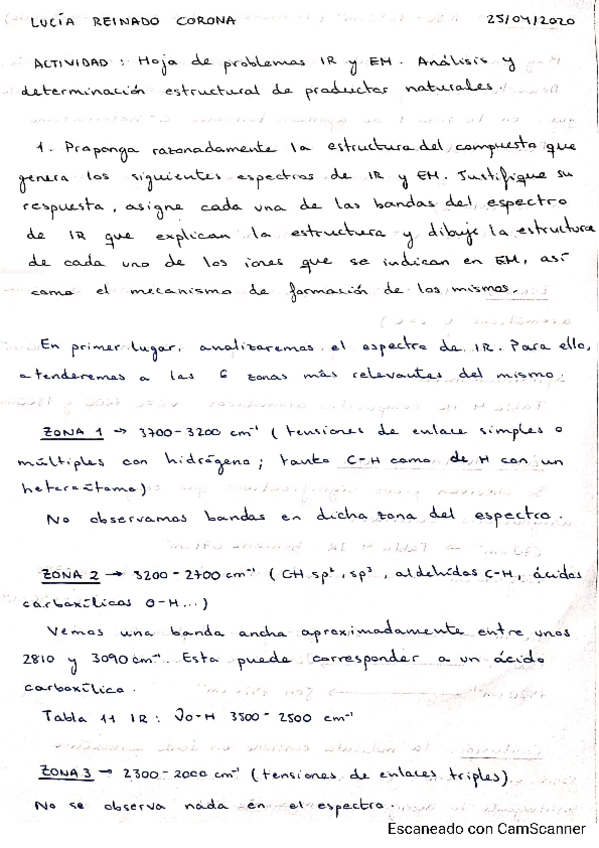 LUCÍA REINADO CORONA 25/04/2020
ACTIVIDAD : Hoja de problemas IR y EM. Análisis y
determinación estructural de productos naturales.
1. Proponga razonadamente la estructura del compuesto que
genera los siguientes espectros de IR y EM. Justifique su
respuesta, asigne cada una de las bandas del espectro
de IR que explican la estructura y dibuje la estructura
de cada uno de los iones que se indican en EM, así
como el mecanismo de formación de los mismos.
En primer lugar, analizaremos el espectro de IR. Para ello,
atenderemos a las 6 zonas más relevantes del mismo.
ZONA 1 → 3700-3200 cm⁻¹ (tensiones de enlace simples o
múltiples con hidrógeno; tanto C-H como de H con un
heteroátomo)
No observamos bandas en dicha zona del espectro.
ZONA 2 → 3200-2700 cm⁻¹ (CH sp², sp³, aldehídos C-H, ácidos
carboxílicos O-H...)
Vemos una banda ancha aproximadamente entre unos
2810 y 3090 cm⁻¹. Esta puede corresponder a un ácido
carboxílico.
Tabla 11 IR: υO-H 3500-2500 cm⁻¹
ZONA 3 → 2300-2000 cm⁻¹ (tensiones de enlaces triples).
No se observa nada en el espectro.
Escaneado con CamScanner